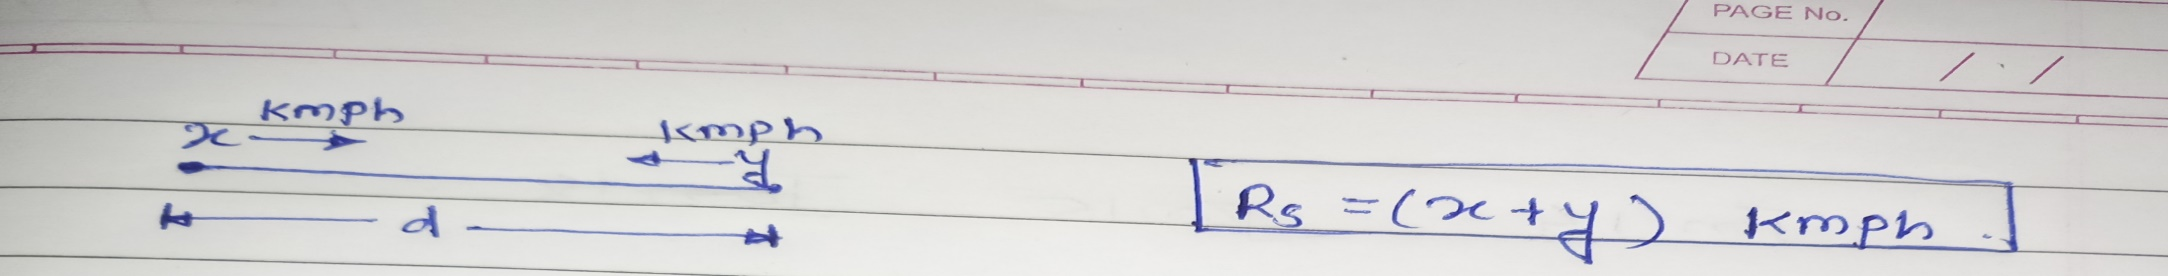 PAGE No.
DATE / /
kmph kmph
x y
d
Rs = (x + y) kmph.